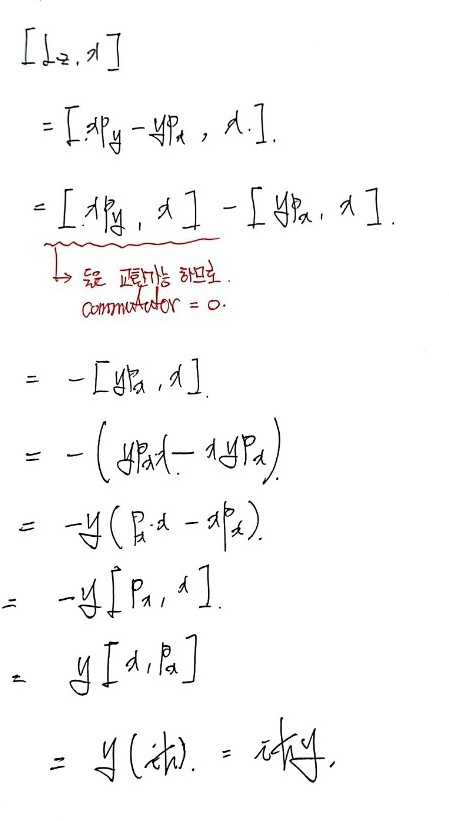 [L_z, x]
= [xp_y - yp_x, x].
= [xp_y, x] - [yp_x, x].
→ 둘은 교환가능 하므로.
commutator = 0.
= -[yp_x, x].
= -(yp_x x - xyp_x).
= -y(p_x·x - xp_x).
= -y[p_x, x].
= y[x, p_x]
= y(iħ). = iħy.